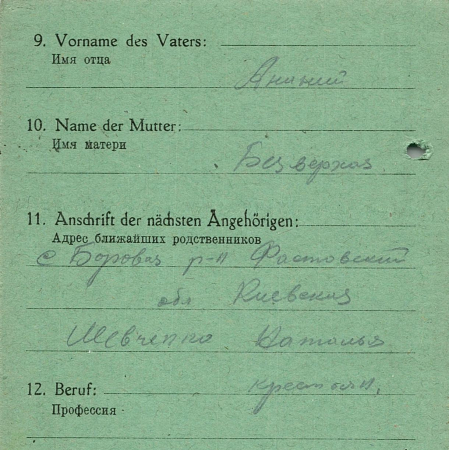 9. Vorname des Vaters:
Имя отца
Ананий
10. Name der Mutter:
Имя матери
Безверхая
11. Anschrift der nächsten Angehörigen:
Адрес ближайших родственников
с Боровая р-н Фастовский
обл Киевская
Шевченко Наталья
12. Beruf:
крестьян,
Профессия